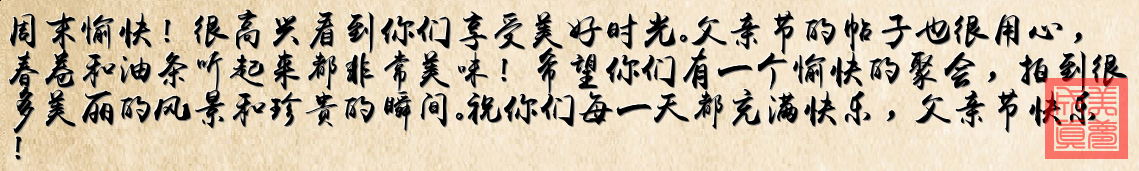 周末愉快！很高兴看到你们享受美好时光。父亲节的帖子也很用心，
春卷和油条听起来都非常美味！希望你们有一个愉快的聚会，拍到很
多美丽的风景和珍贵的瞬间。祝你们每一天都充满快乐，父亲节快乐
！
美梦成真